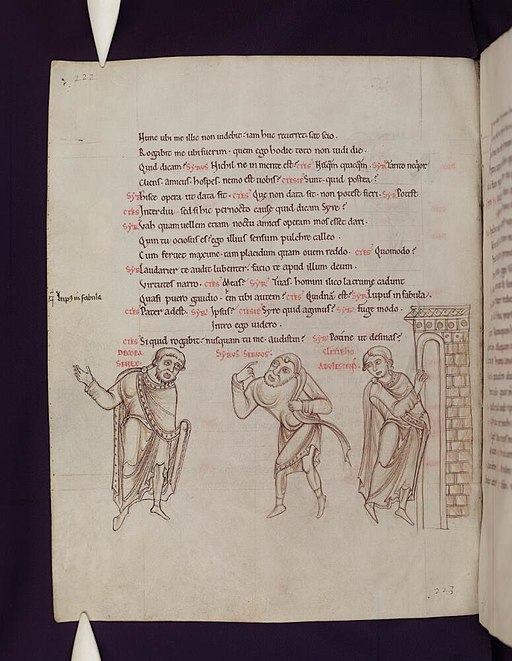 222
Hunc ubi me illic non uidebit. iam huc recurret. sat scio.
Rogabit me ubi fuerim. quem ego hodie toto non uidi die.
Quid dicam? SYRUS Nichil ne in mente est. CTES' quicquam. SYR' Tanto neqior
Cliens. amicus. hospes. nemo est uobis? CTESIP Sunt. quid postea?
SYR' Hisce opera ut data sit. CTES' Que non data sit. non potest fieri. SYR' Potest
CTES' Interdiu. sed si hic pernocto cause quid dicam Syre?
SYR' Vah quam uellem etiam noctu amicis operam mos esset dari.
Quin tu ociosus es? ego illius sensum pulchre calleo.
Cum feruet maxume. tam placidum quam ouem reddo. CTES' Quomodo?
SYR' Laudarier te audit lubenter. facio te apud illum deum.
Virtutes narro. CTES' Meas? SYR' Tuas. homini ilico lacrume cadunt
Quasi puero gaudio. em tibi autem? CTES' Quidna est? SYR' Lupus in fabula.
lupus in fabula
CTES' Pater adest. SYR' Ipsus? CTESIP Syro quid agimus? SYR' fuge modo.
Intro ego uidero.
CTES' Si quid rogabit. nusquam tu me. audistin? SYR' Potine ut desinas?
DEMEA SENEX
SYRUS SERUOS
CTESIPHO ADULESCENS
223